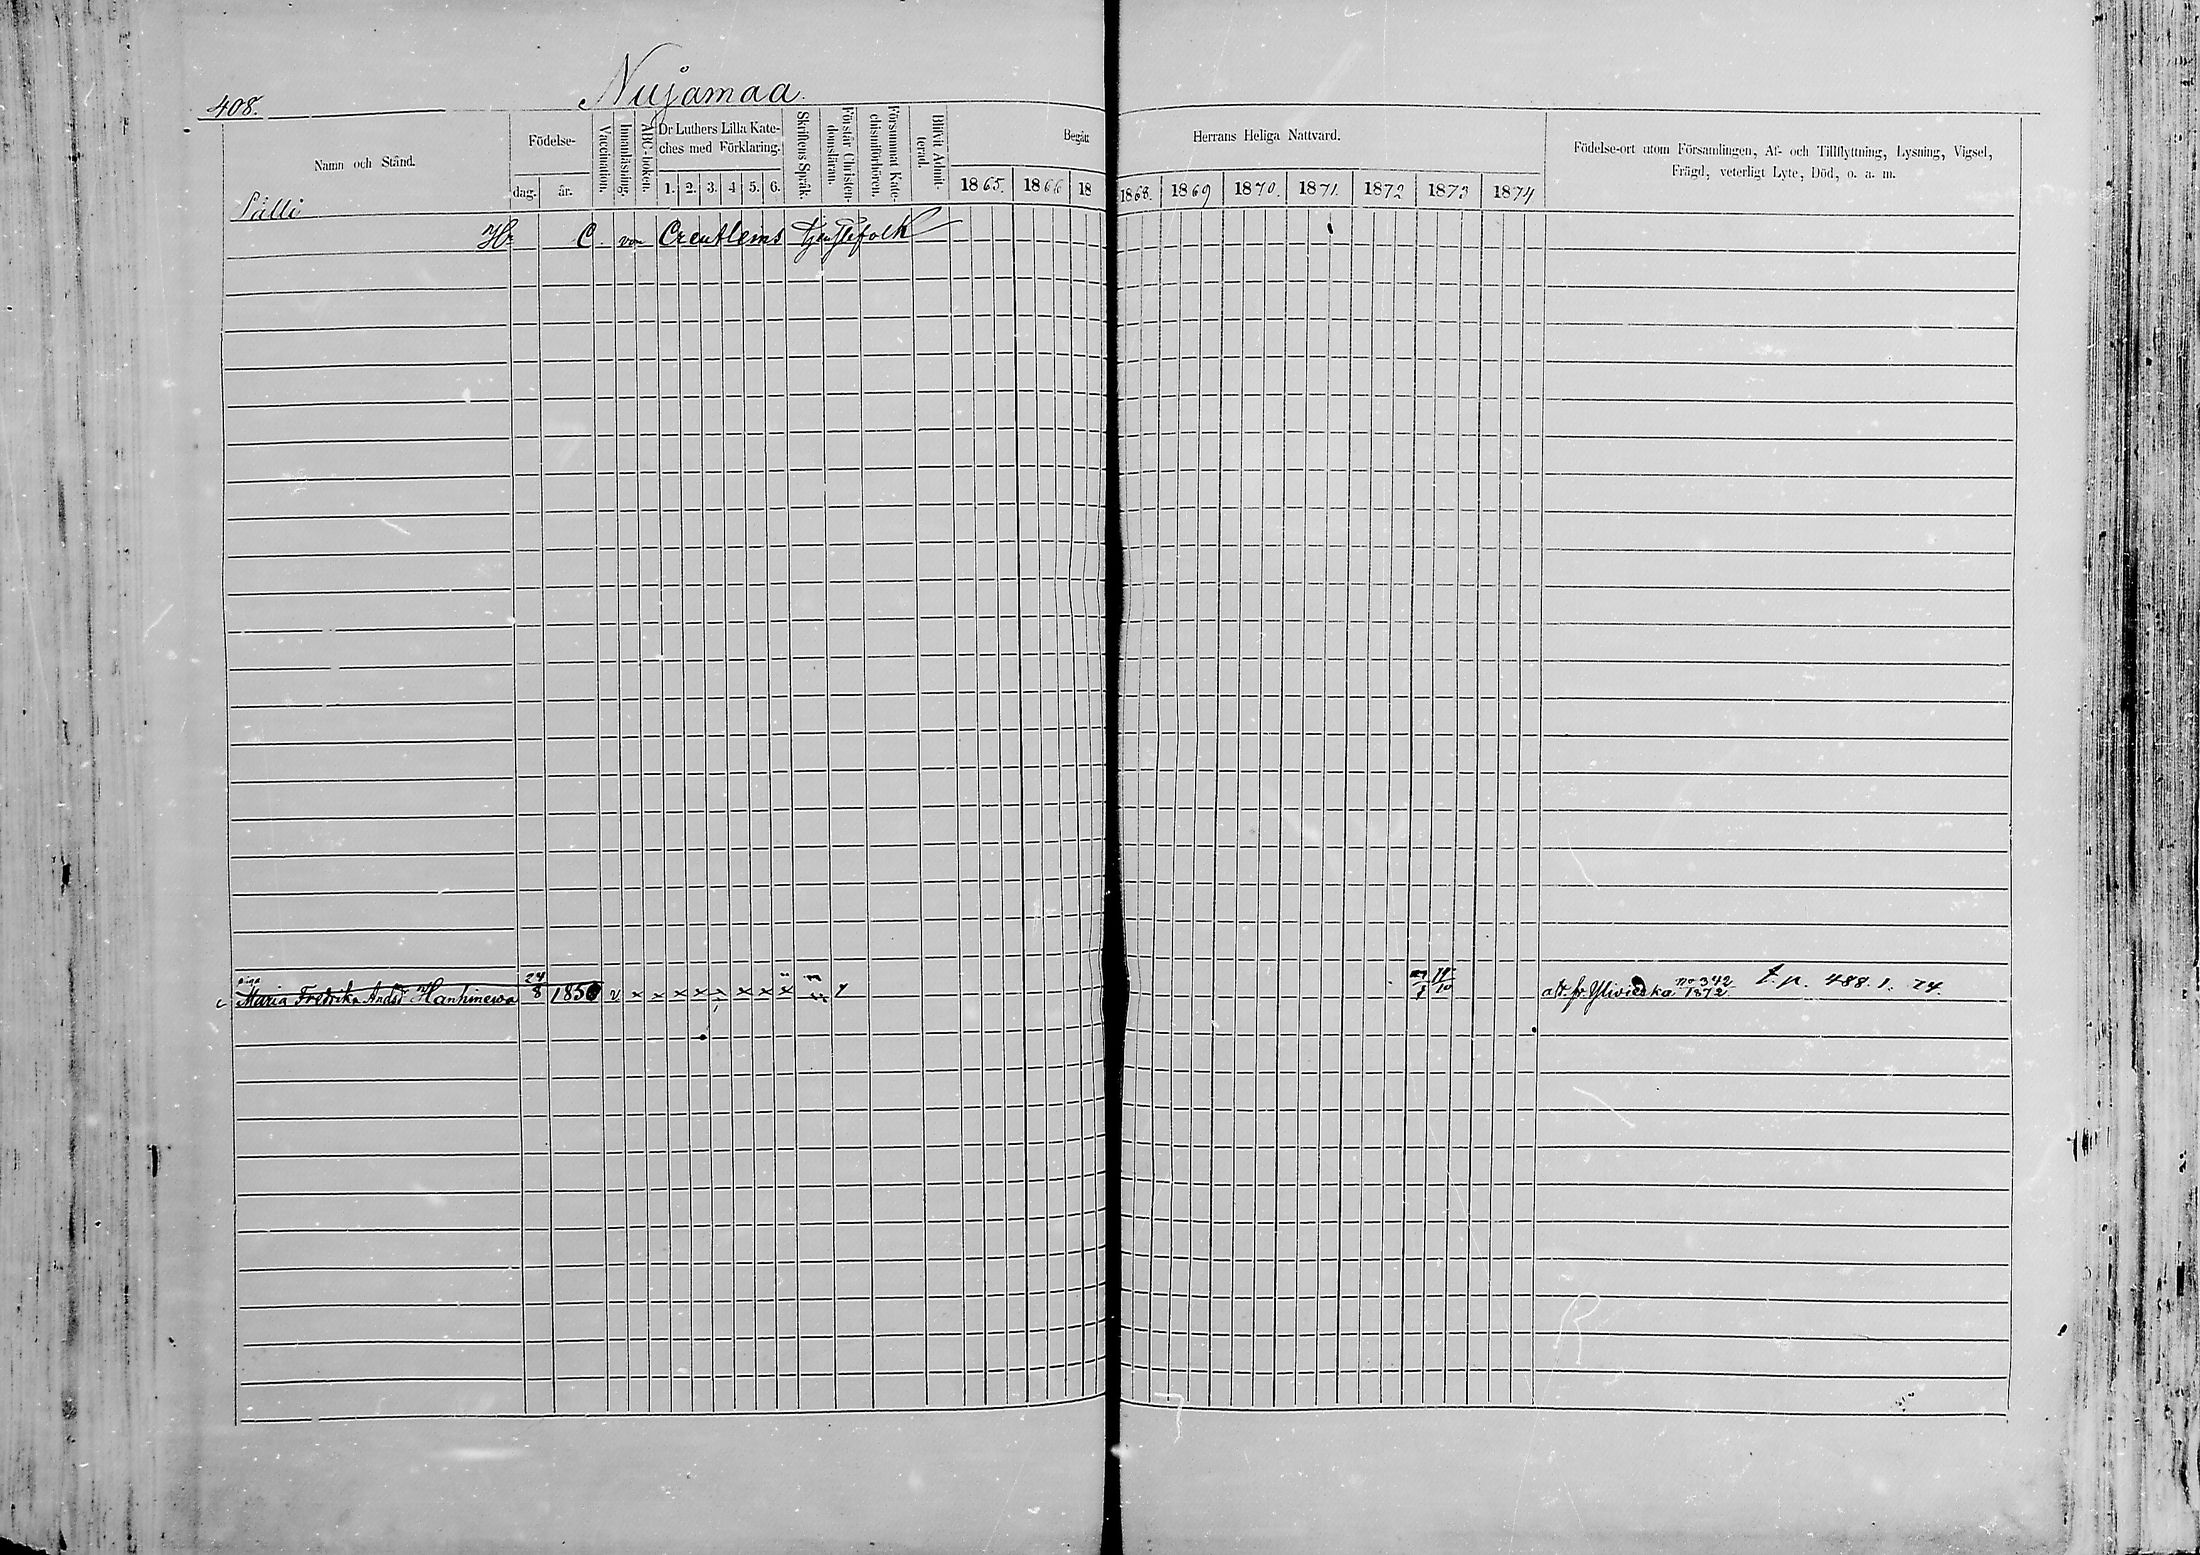 408.
Nujamaa.
Namn och Stånd.
Födelse-
dag. år.
Vaccination.
Innanläsning.
ABC-boken.
Dr Luthers Lilla Kate-
ches med Förklaring.
1. 2. 3. 4 5. 6.
Skriftens Språk.
Förstår Christen-
domsläran.
Försummat Kate-
chismiförhören.
Blifvit Admit-
terad.
Begått
Herrans Heliga Nattvard.
1865. 1866 18
1868. 1869 1870. 1871. 1872 1873 1874
Födelse-ort utom Församlingen, Af- och Tillflyttning, Lysning, Vigsel,
Frägd, veterligt Lyte, Död, o. a. m.
Pälli
Hr C. von Creutleins tjenstefolk
piga
Maria Fredrika Andsd Hanhinewa 24/8 1850 v x x x x x x x x
att. fr Ylivieska No 342 1872. t.p. 488.1. 74.